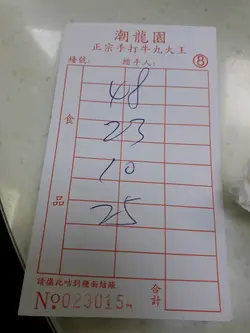 潮龍園
正宗手打牛丸大王
檯號： 經手人： 8
48
食 23
10
品 25
請攜此咭到櫃面結賬 合計
No 023015